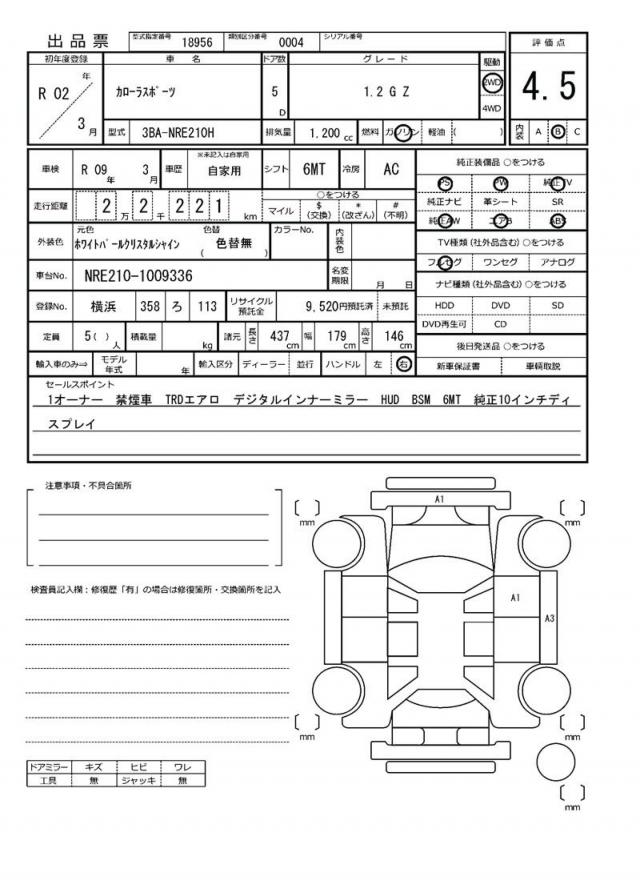 出品票 型式指定番号 18956 類別区分番号 0004 シリアル番号
初年度登録 車名 ドア数 グレード 駆動 評価点
R 02 年 3 月 カローラスポーツ 5 D 1.2 G Z 2WD 4WD 4.5
型式 3BA-NRE210H 排気量 1.200 cc 燃料 ガソリン 軽油 ( ) 内装 A B C
車検 R 09 年 3 月 車歴 ※未記入は自家用 自家用 シフト 6MT 冷房 AC
純正装備品 ○をつける
PS PW 純正TV
純正ナビ 革シート SR
純正AW エアB ABS
走行距離 2 万 2 千 2 2 1 km ○をつける マイル $ (交換) * (改ざん) # (不明)
外装色 元色 ホワイトパールクリスタルシャイン 色替 ( 色替無 ) カラーNo. 内装色
TV種類 (社外品含む) ○をつける
フルセグ ワンセグ アナログ
車台No. NRE210-1009336 名変期限 月 日
ナビ種類 (社外品含む) ○をつける
HDD DVD SD
DVD再生可 CD
登録No. 横浜 358 ろ 113 リサイクル預託金 9,520円預託済 未預託
定員 5( ) 人 積載量 kg 諸元 長さ 437 cm 幅 179 cm 高さ 146 cm
後日発送品 ○をつける
新車保証書 車輌取説
輸入車のみ⇒ モデル年式 年 輸入区分 ディーラー 並行 ハンドル 左 右
セールスポイント
1オーナー 禁煙車 TRDエアロ デジタルインナーミラー HUD BSM 6MT 純正10インチディ
スプレイ
注意事項・不具合箇所
検査員記入欄：修復歴「有」の場合は修復箇所・交換箇所を記入
A1
mm
mm
A1
A3
mm
mm
mm
ドアミラー キズ ヒビ ワレ
工具 無 ジャッキ 無